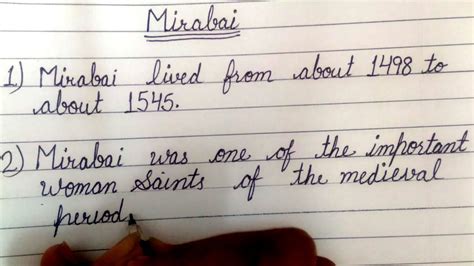 Mirabai
1) Mirabai lived from about 1498 to
about 1545.
2) Mirabai was one of the important
woman Saints of the medieval
period